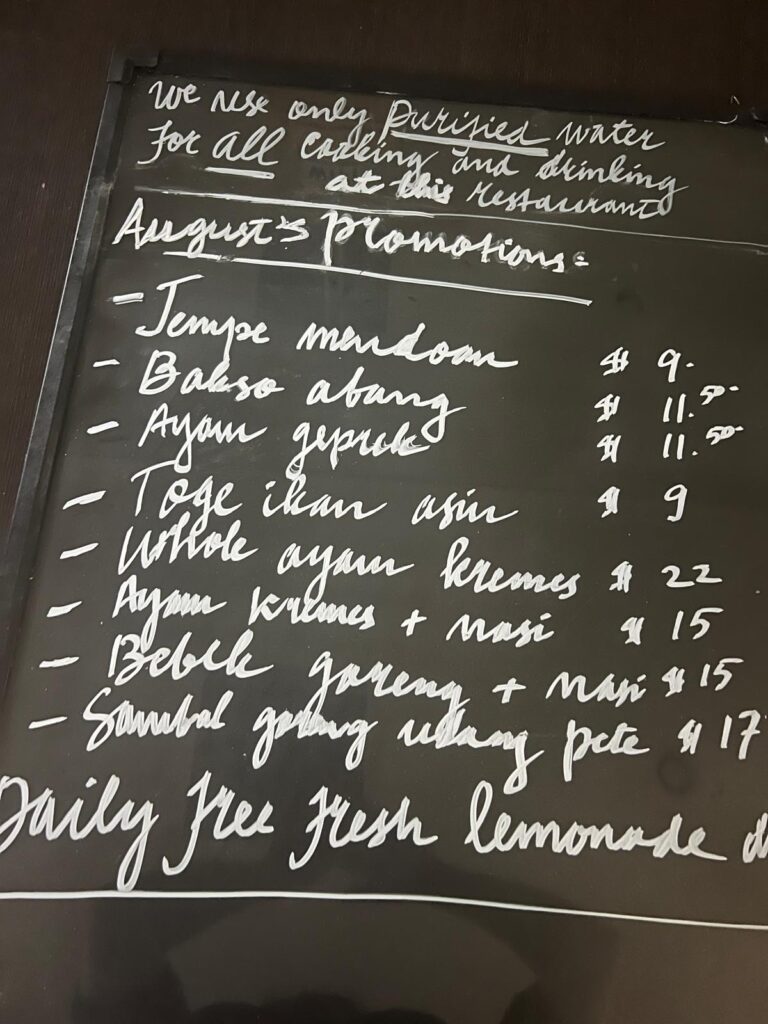 We use only Purified water
for all cooking and drinking
at this restaurant
August's promotions:
- Tempe mendoan $ 9.-
- Bakso abang $ 11.50-
- Ayam geprek $ 11.50-
- Toge ikan asin $ 9
- Whole ayam kremes $ 22
- Ayam kremes + nasi $ 15
- Bebek goreng + nasi $ 15
- Sambal goreng udang pete $ 17
Daily free fresh lemonade